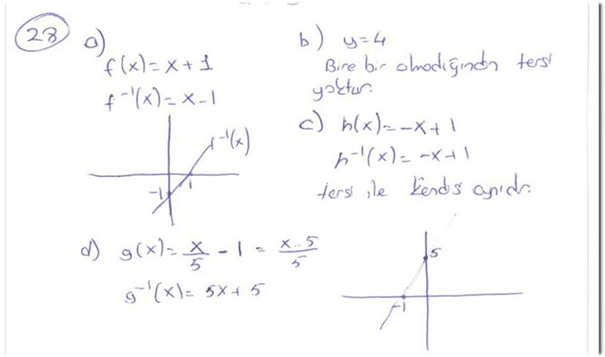 28
a)
f(x) = x + 1
f⁻¹(x) = x - 1
f⁻¹(x)
-1
1
b) y = 4
Bire bir olmadığından tersi
yoktur.
c) h(x) = -x + 1
h⁻¹(x) = -x + 1
tersi ile kendisi aynıdır.
d) g(x) = x/5 - 1 = x - 5/5
g⁻¹(x) = 5x + 5
5
-1